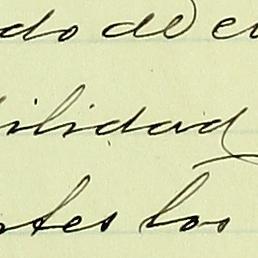 do de e
ilidad
rtes los